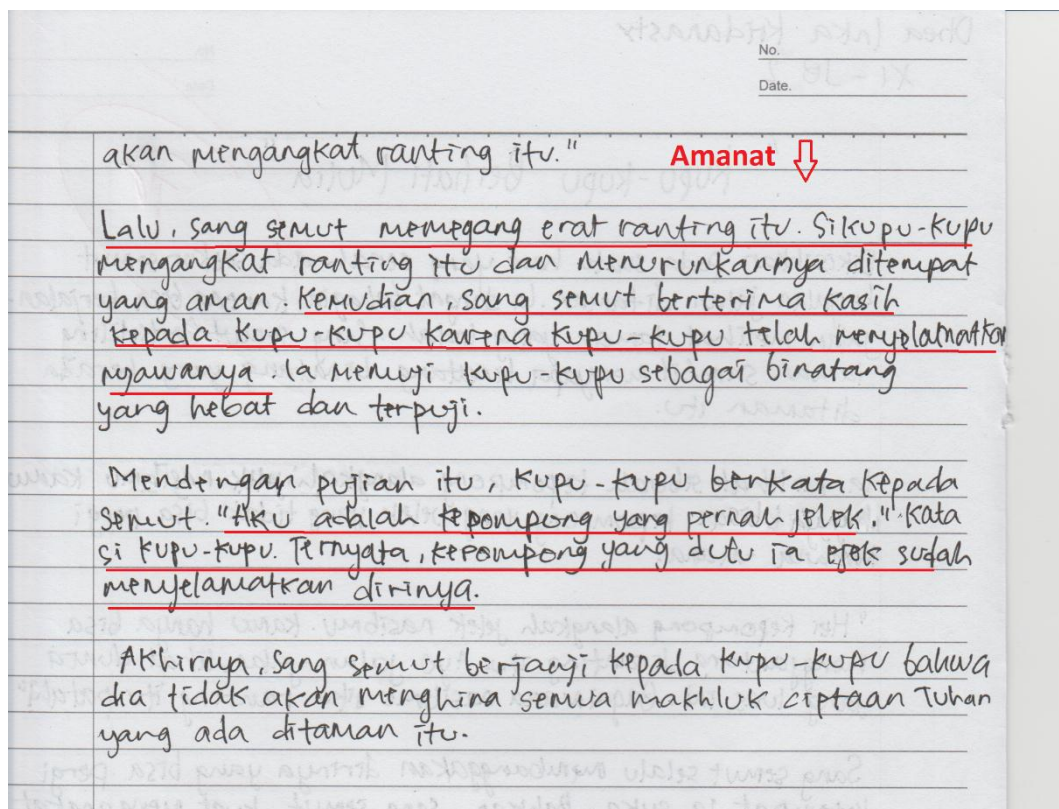 No.
Date.
akan mengangkat ranting itu."
Amanat
Lalu, sang semut memegang erat ranting itu. Si kupu-kupu
mengangkat ranting itu dan menurunkannya ditempat
yang aman. Kemudian sang semut berterima kasih
kepada kupu-kupu karena kupu-kupu telah menyelamatkan
nyawanya. Ia memuji kupu-kupu sebagai binatang
yang hebat dan terpuji.
Mendengar pujian itu kupu-kupu berkata kepada
semut "Aku adalah kepompong yang pernah jelek." kata
si kupu-kupu. Ternyata, kepompong yang dulu ia ejek sudah
menyelamatkan dirinya.
Akhirnya, sang semut berjanji kepada kupu-kupu bahwa
dia tidak akan menghina semua makhluk ciptaan Tuhan
yang ada ditaman itu.